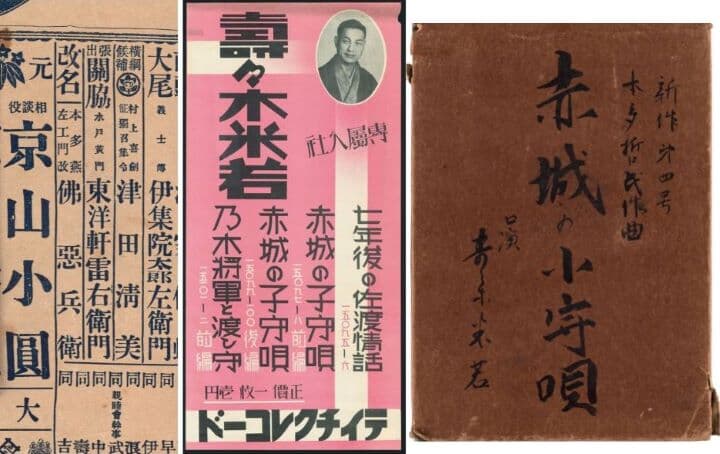 大尾
義士傳
伊集院
左衛門
同
横綱候補
村上喜劍
征露召集令
津田清美
同
張出
關脇
水戸黄門
東洋軒雷右衛門
同
改名
本多燕
左工門改
佛惡兵衛
同
親睦會幹事
元
相談役
京山小圓
大
壽々木米若
専屬入社
七年後の佐渡情話
一五〇九五—六
赤城の子守唄
一五〇九七—八 前編
赤城の子守唄
一五〇九九—一〇〇 後編
乃木將軍と渡し守
前編
正價 一枚 壱円
テイチクレコード
新作第四号
本多哲氏作曲
赤城の小守唄
口演
寿々木米若